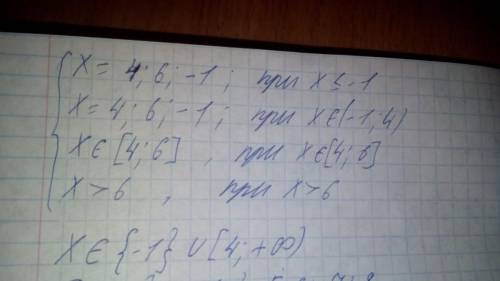 X = 4; 6; -1; при x ≤ -1
X = 4; 6; -1; при x ∈ (-1; 4)
X ∈ [4; 6], при x ∈ [4; 6]
X > 6, при x > 6
X ∈ {-1} ∪ [4; +∞)